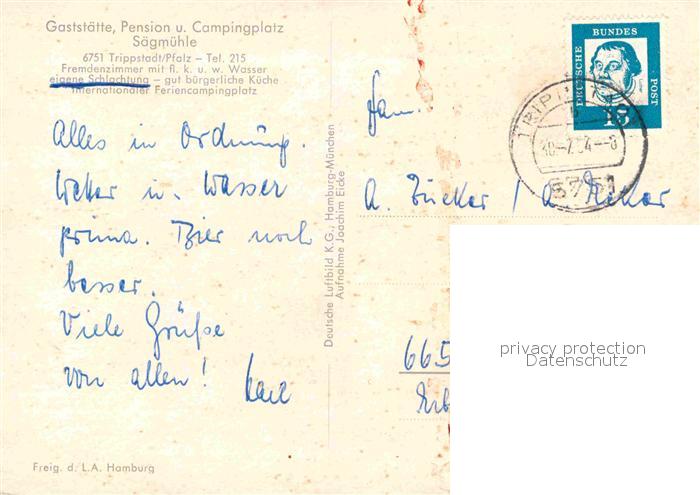 Gaststätte, Pension u. Campingplatz
Sägmühle
6751 Trippstadt/Pfalz – Tel. 215
Fremdenzimmer mit fl. k. u. w. Wasser
eigene Schlachtung – gut bürgerliche Küche
Internationaler Feriencampingplatz
Alles in Ordnung.
Wetter u. Wasser
prima. Bier noch
besser.
Viele Grüße
von allen! Karl
Freig. d. L.A. Hamburg
Deutsche Luftbild K.G., Hamburg-München
Aufnahme Joachim Eicke
DEUTSCHE BUNDES POST
15
6751
Fam.
A. Zucker / A.
665
privacy protection
Datenschutz